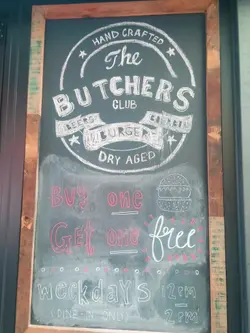 HAND CRAFTED
The
BUTCHERS
CLUB
BEERS
BURGERS
DRY AGED
Buy one
Get one free
Workdays 12PM
(DINE IN ONLY) 2PM